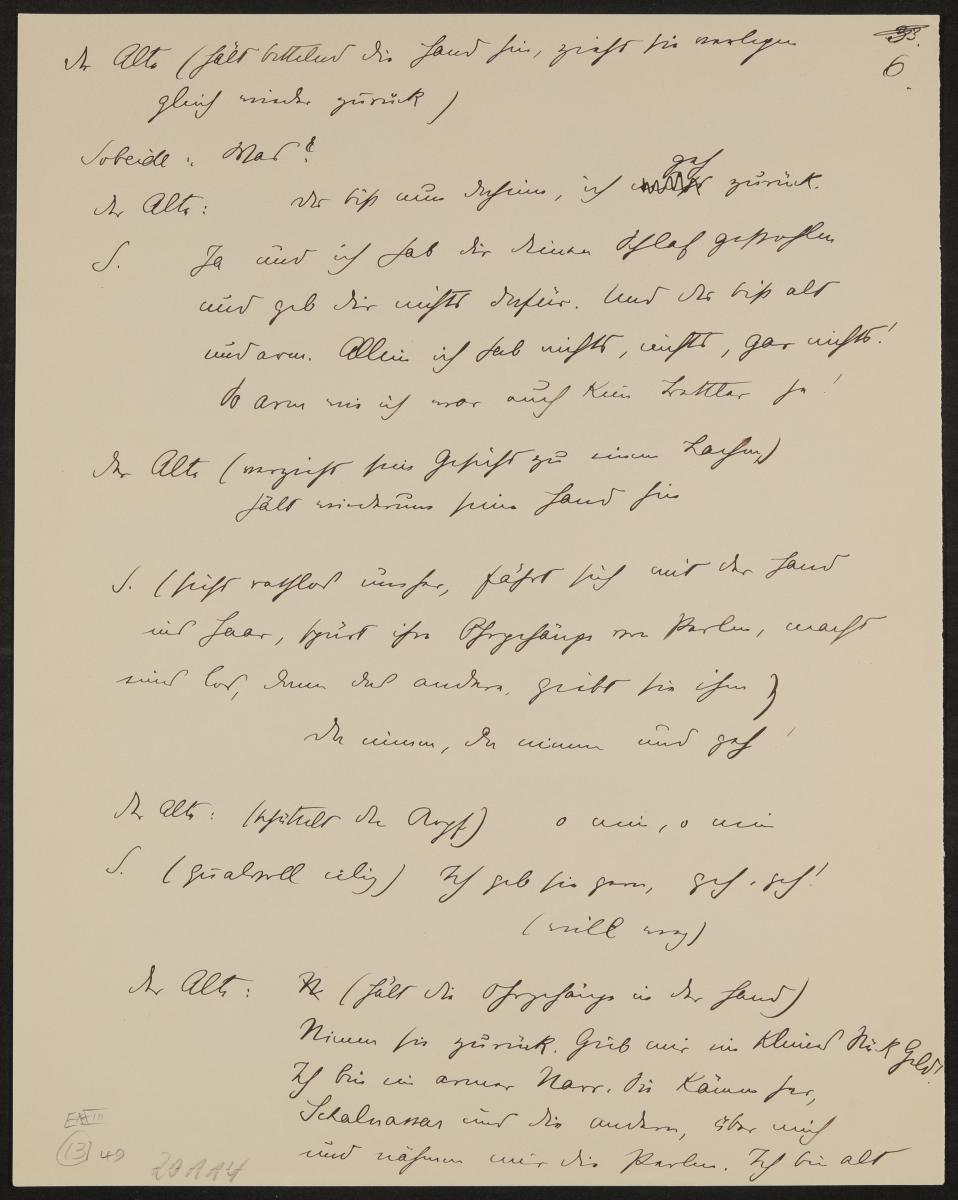 33.
6.
der Alte (hält bittelnd die Hand hin, zieht sie verlegen
gleich wieder zurück)
Sobeide: Was?
der Alte: Du bist nun daheim, ich geh zurück.
S. Ja und ich hab dir deinen Schlaf gestohlen
und geb dir nichts dafür. Und du bist alt
und arm. Allein ich hab nichts, nichts, gar nichts!
So arm wie ich war auch kein Bettler je!
der Alte (verzieht sein Gesicht zu einem Lachen)
hält wiederum seine Hand hin
S. (sieht rathlos umher, fährt sich mit der Hand
ins Haar, spürt ihre Ohrgehänge von Perlen, macht
eines los, dann das andere, giebt sie ihm)
Da nimm, da nimm und geh!
der Alte: (schüttelt den Kopf) o nein, o nein
S. (qualvoll eilig) Ich geb sie gern, geh, geh!
(will weg)
der Alte: N (hält die Ohrgehänge in der Hand)
Nimm sie zurück. Gieb mir ein kleines Stück Geld!
Ich bin ein armer Narr. Sie kämen her,
Schalnassar und die andern, über mich
und nähmen mir die Perlen. Ich bin alt
E III
(13) 49
20114